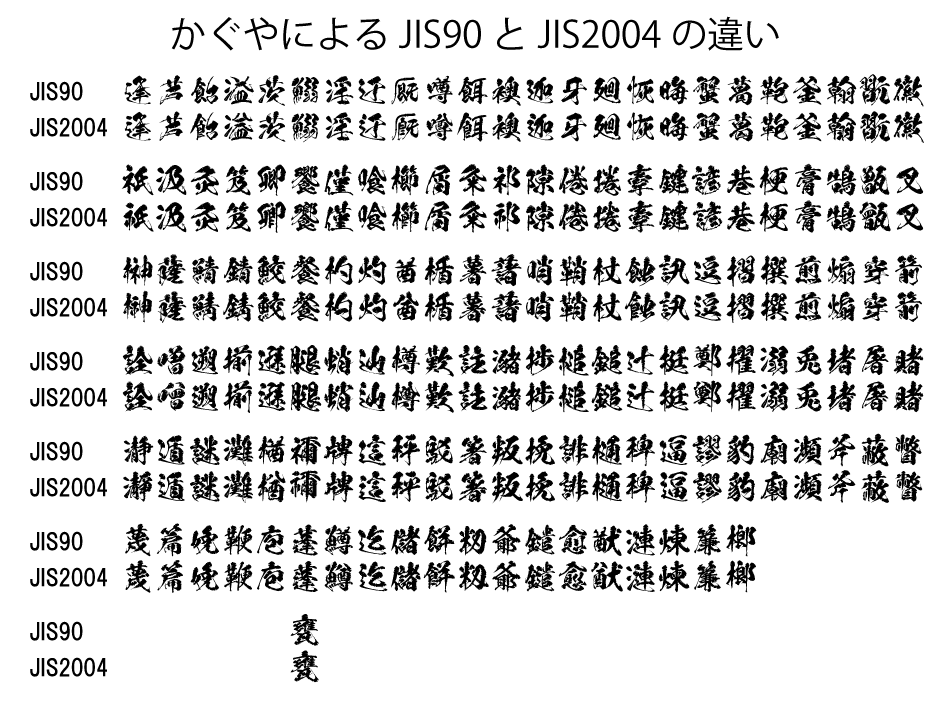 かぐやによる JIS90 と JIS2004 の違い
JIS90 逢芦飴溢茨鰯淫迂厩噂餌襖迦牙廻恢晦蟹葛鞄釜翰翫徽
JIS2004 逢芦飴溢茨鰯淫迂厩噂餌襖迦牙廻恢晦蟹葛鞄釜翰翫徽
JIS90 祇汲灸笈卿饗僅喰櫛屑粂祁隙倦捲牽鍵諺巷梗膏鵠甑叉
JIS2004 祇汲灸笈卿饗僅喰櫛屑粂祁隙倦捲牽鍵諺巷梗膏鵠甑叉
JIS90 榊薩鯖錆鮫餐杓灼酋楯薯藷哨鞘杖蝕訊逗摺撰煎煽穿箭
JIS2004 榊薩鯖錆鮫餐杓灼酋楯薯藷哨鞘杖蝕訊逗摺撰煎煽穿箭
JIS90 詮噌遡揃遜腿蛸辿樽歎註瀦捗槌鎚辻挺鄭擢溺兎堵屠賭
JIS2004 詮噌遡揃遜腿蛸辿樽歎註瀦捗槌鎚辻挺鄭擢溺兎堵屠賭
JIS90 瀞遁謎灘楢禰牌這秤駁箸叛挽誹樋稗逼謬豹廟瀕斧蔽瞥
JIS2004 瀞遁謎灘楢禰牌這秤駁箸叛挽誹樋稗逼謬豹廟瀕斧蔽瞥
JIS90 蔑篇娩鞭庖蓬鱒迄儲餅籾爺鑓愈猷漣煉簾榔
JIS2004 蔑篇娩鞭庖蓬鱒迄儲餅籾爺鑓愈猷漣煉簾榔
JIS90 甕
JIS2004 甕